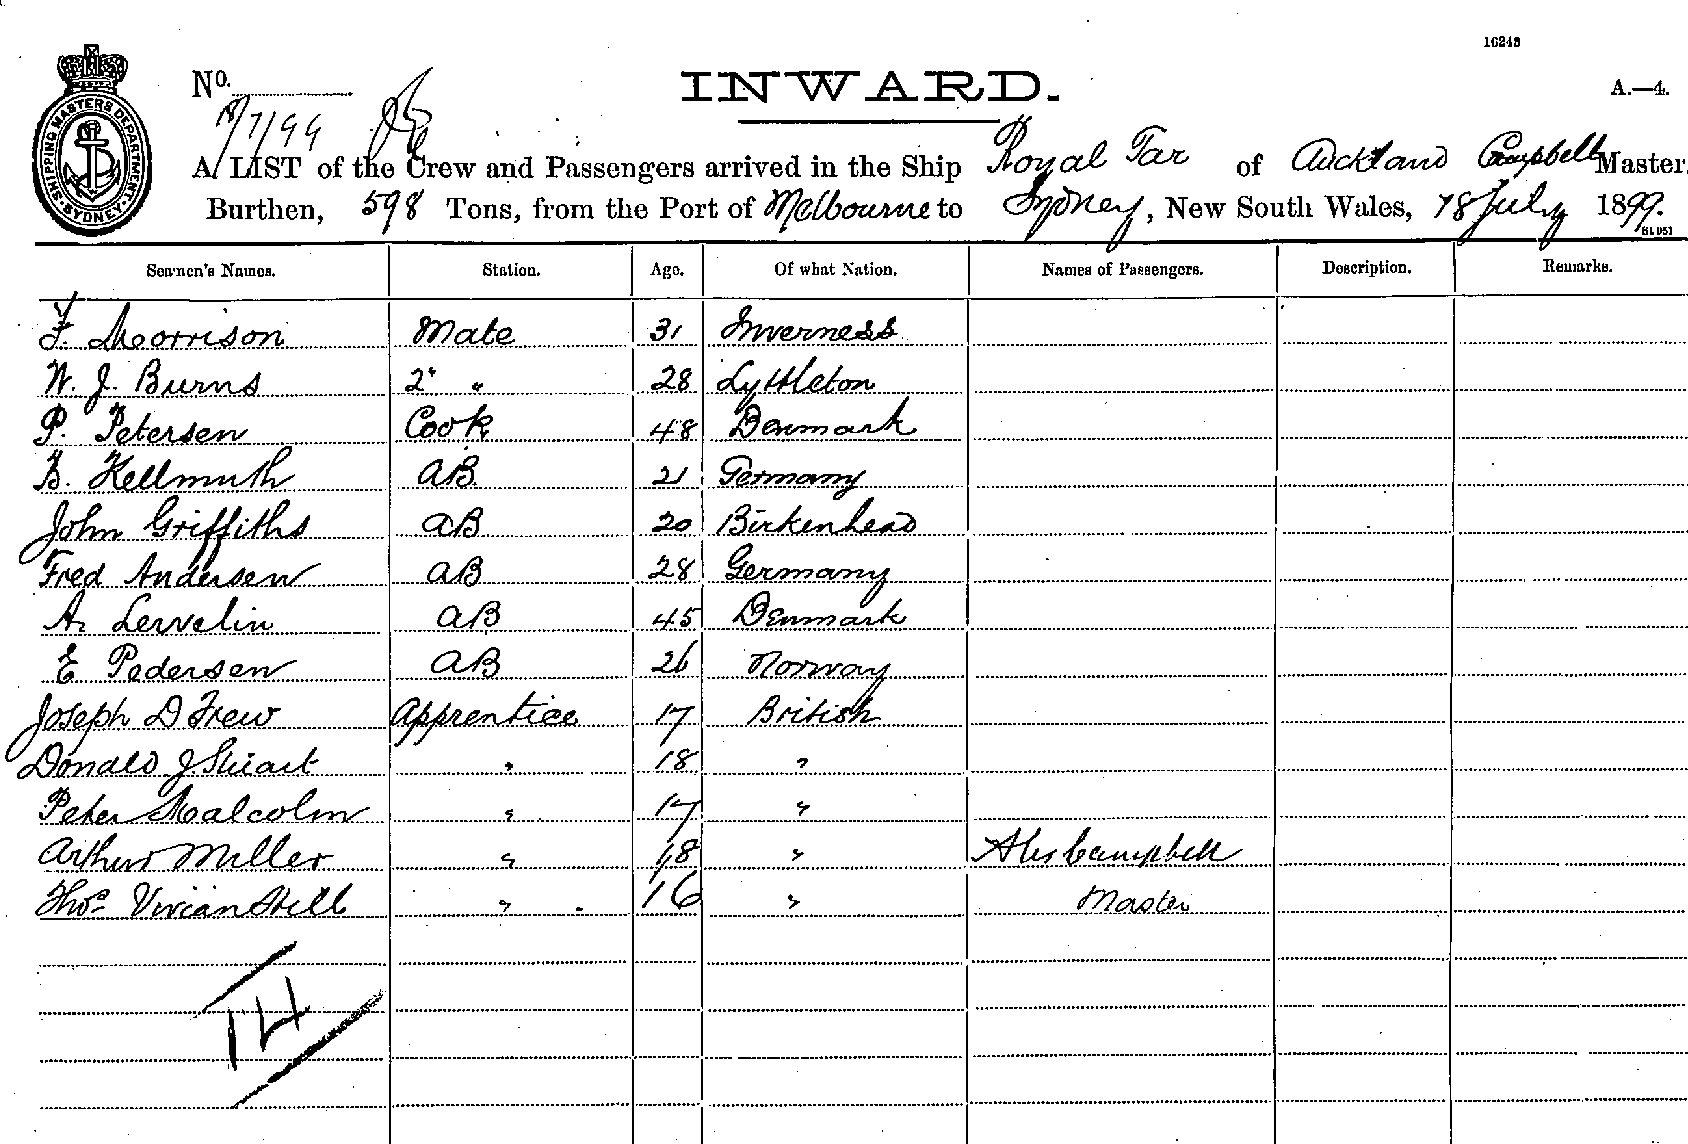 16243
INWARD.
No.
A.—4.
18/7/99
A LIST of the Crew and Passengers arrived in the Ship Royal Tar of Auckland Campbell Master,
Burthen, 598 Tons, from the Port of Melbourne to Sydney, New South Wales, 18 July 1899.
SHIPPING MASTERS DEPARTMENT. SYDNEY.
Seamen's Names. Station. Age. Of what Nation. Names of Passengers. Description. Remarks.
F. Morrison Mate 31 Inverness
W. J. Burns 2" " 28 Lyttleton
P. Petersen Cook 48 Denmark
B. Hellmuth AB 21 Germany
John Griffiths AB 20 Birkenhead
Fred Andersen AB 28 Germany
A. AB 45 Denmark
E Pedersen AB 26 Norway
Joseph D Frew Apprentice 17 British
Donald J Stuart " 18 "
Peter Malcolm " 17 "
Arthur Miller " 18 " Alex Campbell
Thos Vivian Hill " 16 " Master
14